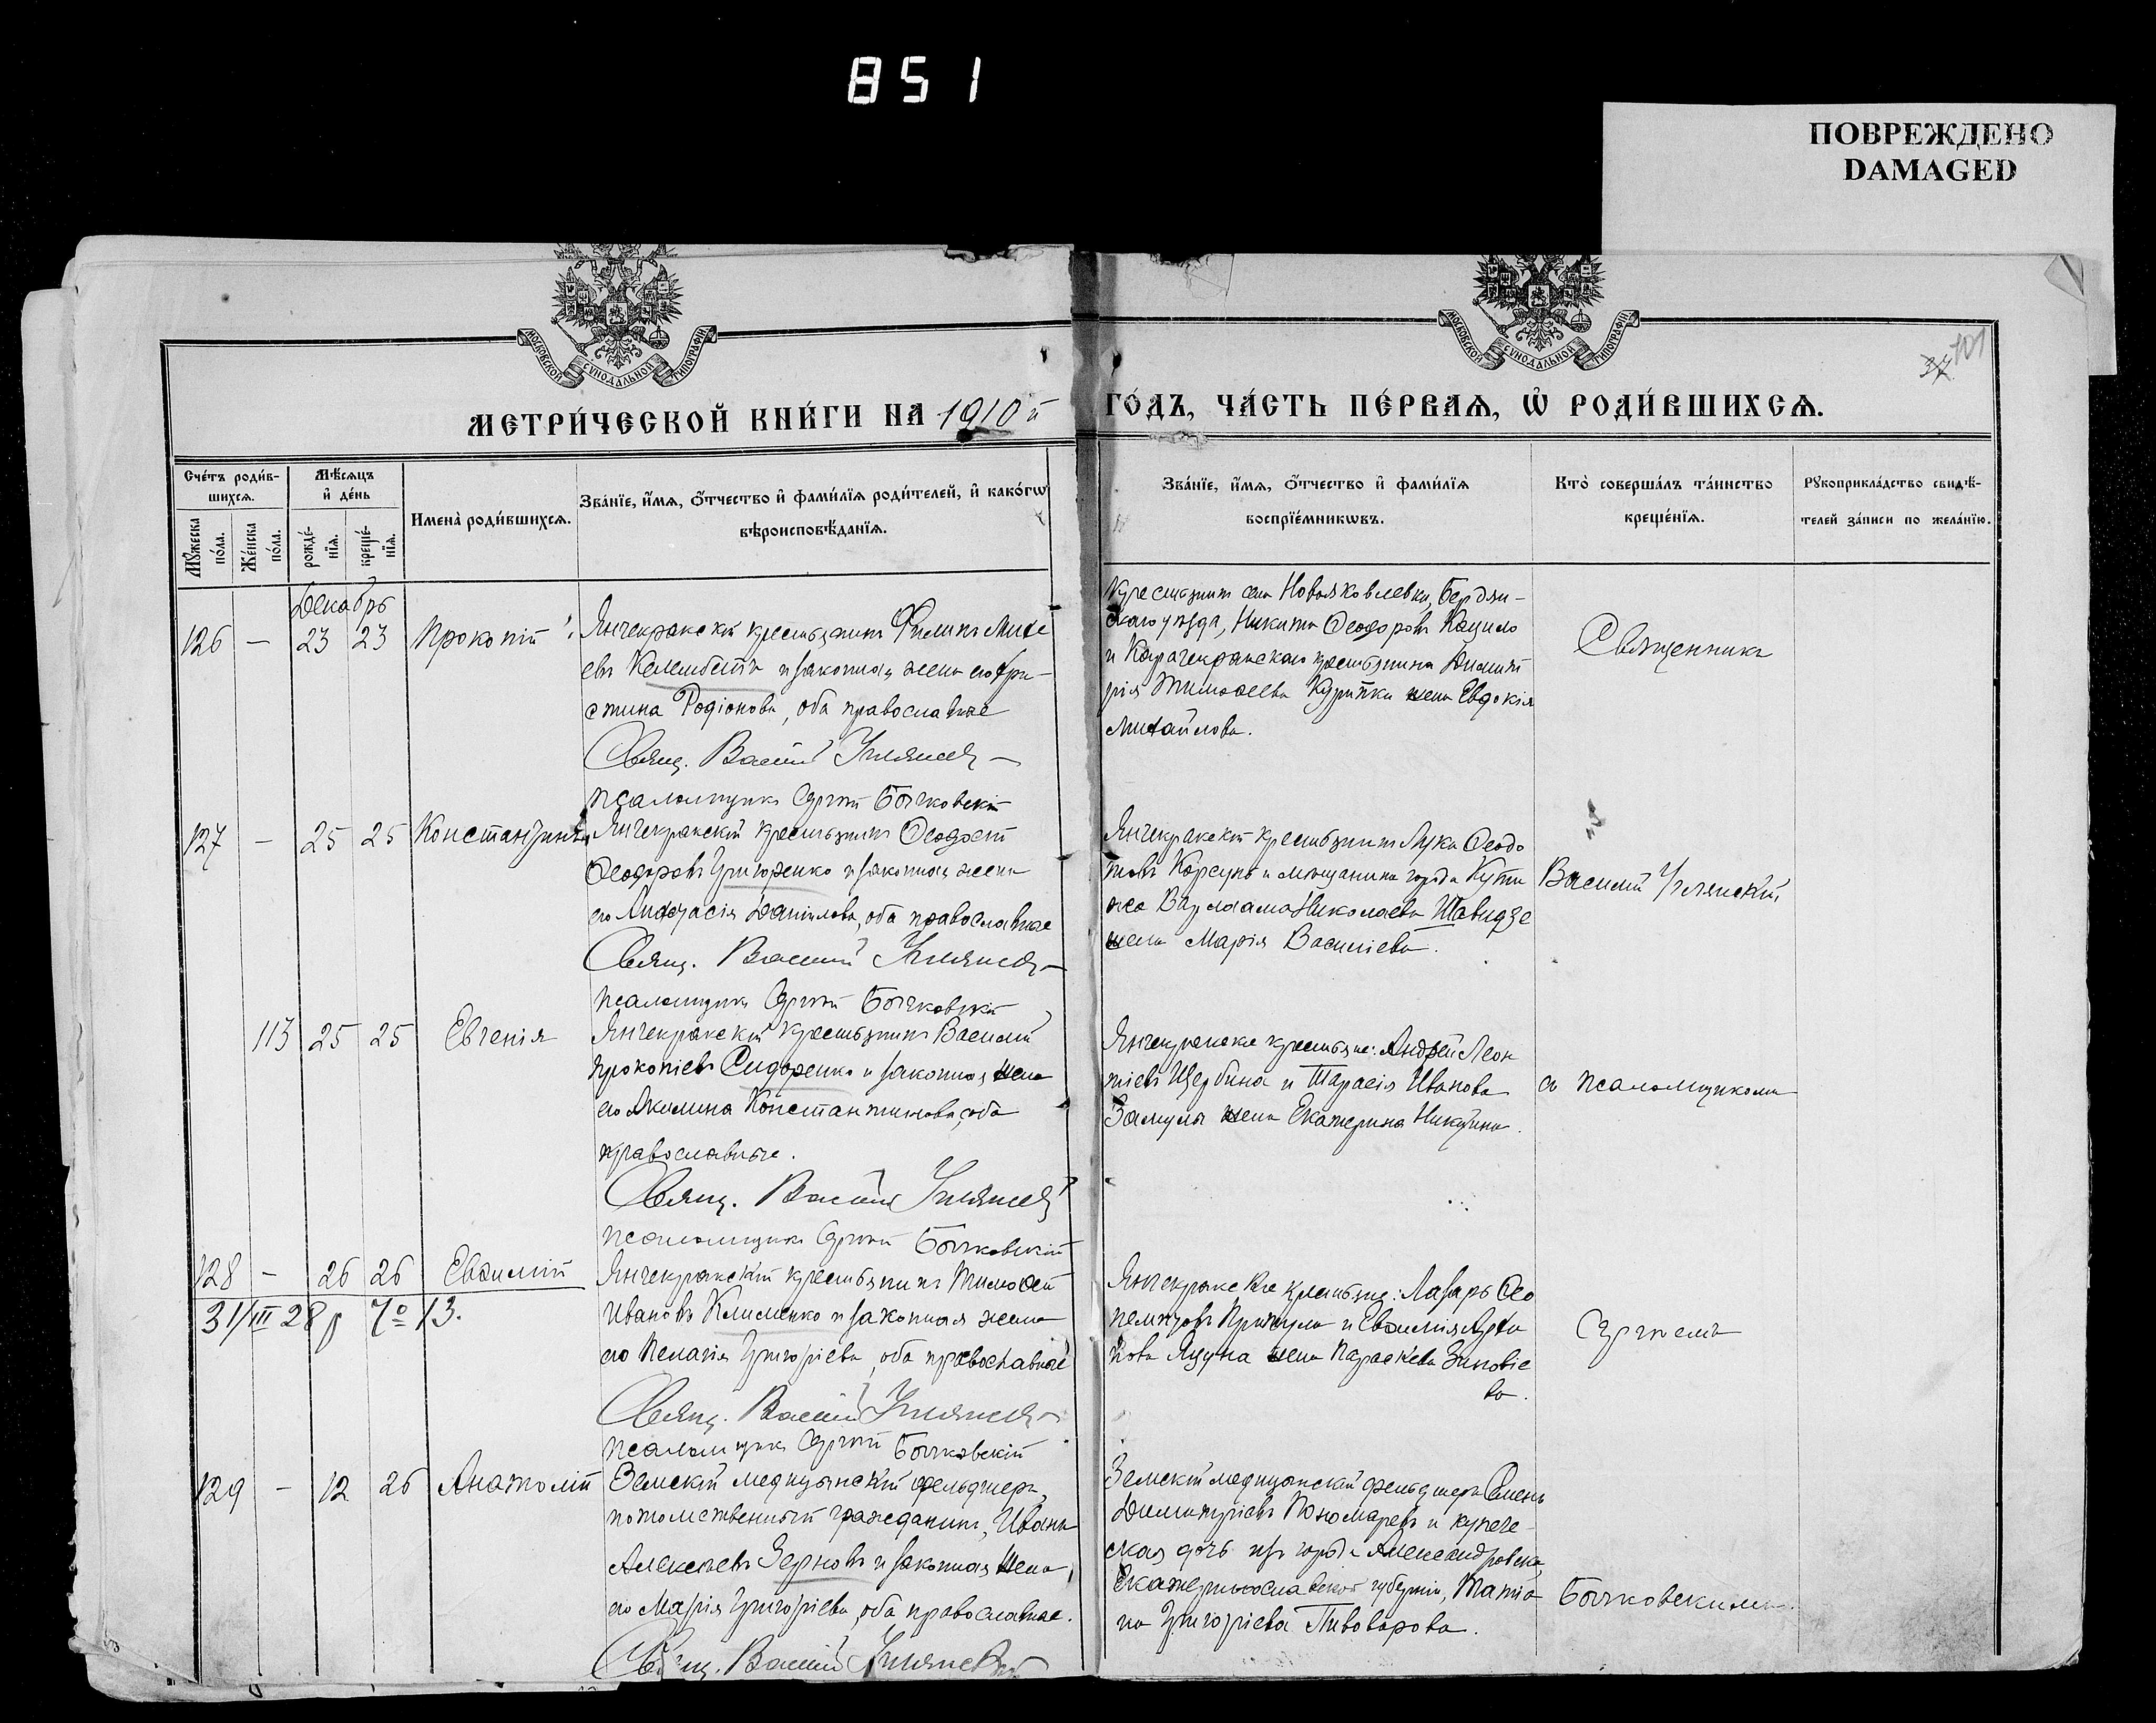 851
ПОВРЕЖДЕНО
DAMAGED
МОСКОВСКОЙ СѴНОДАЛЬНОЙ ТИПОГРАФІИ
МОСКОВСКОЙ СѴНОДАЛЬНОЙ ТИПОГРАФІИ
37 101
МЕТРИ́ЧЕСКОЙ КНИ́ГИ НА 1910 й
ГО́ДЪ, ЧА́СТЬ ПЕ́РВАѦ, Ѡ҆ РОДИ́ВШИХСѦ.
Сче́тъ роди́в-
шихсѧ.
Мꙋ́жеска по́ла.
Же́нска по́ла.
Мѣ́сѧцъ
и҆ де́нь
рожде́-
нїѧ.
креще́-
нїѧ.
Имена̀ роди́вшихсѧ.
Зва́нїе, и҆́мѧ, ѻ҆́тчество и҆ фами́лїѧ роди́телей, и҆ како́гѡ
вѣроисповѣ́данїѧ.
Зва́нїе, и҆́мѧ, ѻ҆́тчество и҆ фами́лїѧ
воспрїе́мникѡвъ.
Кто̀ соверша́лъ та́инство
креще́нїѧ.
Рꙋкоприкла́дство свидѣ́-
телей за́писи по жела́нїю.
Декабрь
126 — 23 23 Прокопій
Янчекракскій крестьянинъ Филипъ Михе
евъ Келембетъ и законная жена его Хри-
стина Родіонова, оба православные
Свящ. Василій
псаломщикъ Сергій Бычковскій
Крестьянинъ села Новояковлевки, Бердян-
скаго уѣзда, Никита Ѳеодоровъ Кацило
и Карачекракскаго крестьянина Димит
рія Тимоѳеева жена Евдокія
Михайлова.
Священникъ
127 — 25 25 Константинъ
Янчекракскій крестьянинъ Ѳеодосій
Ѳеодоровъ Григоренко и законная жена
его Анастасія Даніилова, оба православные
Свящ. Василій
псаломщикъ Сергій Бычковскій
Янчекракскій крестьянинъ Лука Ѳеодо
товъ Корсунь и мѣщанина города Кута
иса Варлаама Николаева Шавидзе
жена Марія Василіева.
Василій
113 25 25 Евгенія
Янчекракскій крестьянинъ Василій
Прокопіевъ Сидоренко и законная жена
его Акилина Константинова, оба
православные.
Свящ. Василій
псаломщикъ Сергій Бычковскій
Янчекракскіе крестьяне: Андрей Леон
тіевъ Щербина и Тарасія Иванова
Замулы жена Екатерина Никитина.
съ псаломщикомъ
128 — 26 26 Евѳимій
31/III 28 р № 13.
Янчекракскій крестьянинъ Тимоѳей
Ивановъ Клименко и законная жена
его Пелагія Григоріева, оба православные
Свящ. Василій
псаломщикъ Сергій Бычковскій
Янчекракскіе крестьяне: Лазарь Ѳео
пемптовъ и Евѳимія
жена Параскева Зиновіе
ва.
Сергіемъ
129 — 12 26 Анатолій
Земскій медицынскій фельдшеръ,
потомственный гражданинъ, Иванъ
Алексѣевъ Зерновъ и законная жена
его Марія Григоріева, оба православные.
Свящ. Василій
Земскій медицынскій фельдшеръ Семенъ
Димитріевъ Пономаревъ и купече-
ская дочь изъ города Александровска,
Екатеринославской губерніи, Татіа
на Григоріева Пивоварова.
Бычковскимъ.